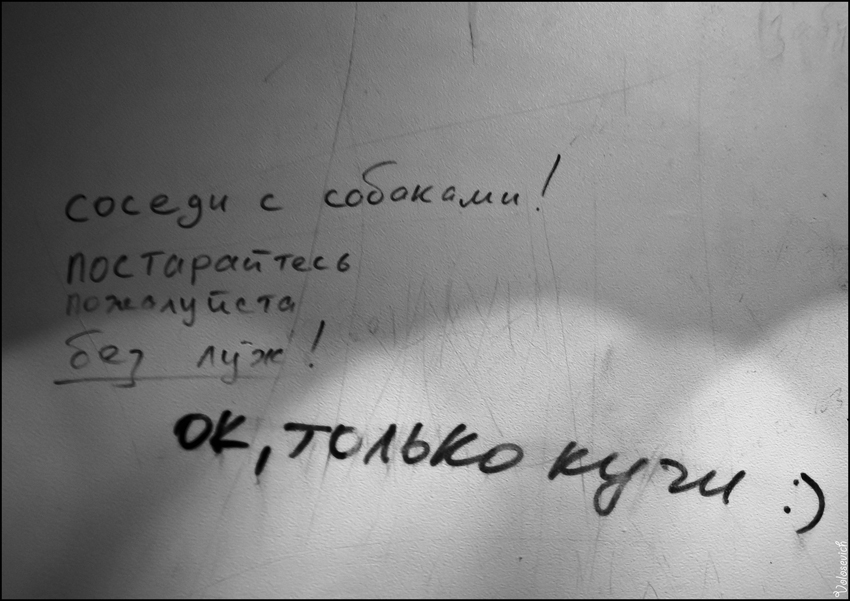 соседи с собаками!
постарайтесь
пожалуйста
без луж!
ок, только кучи :)
Volosevich